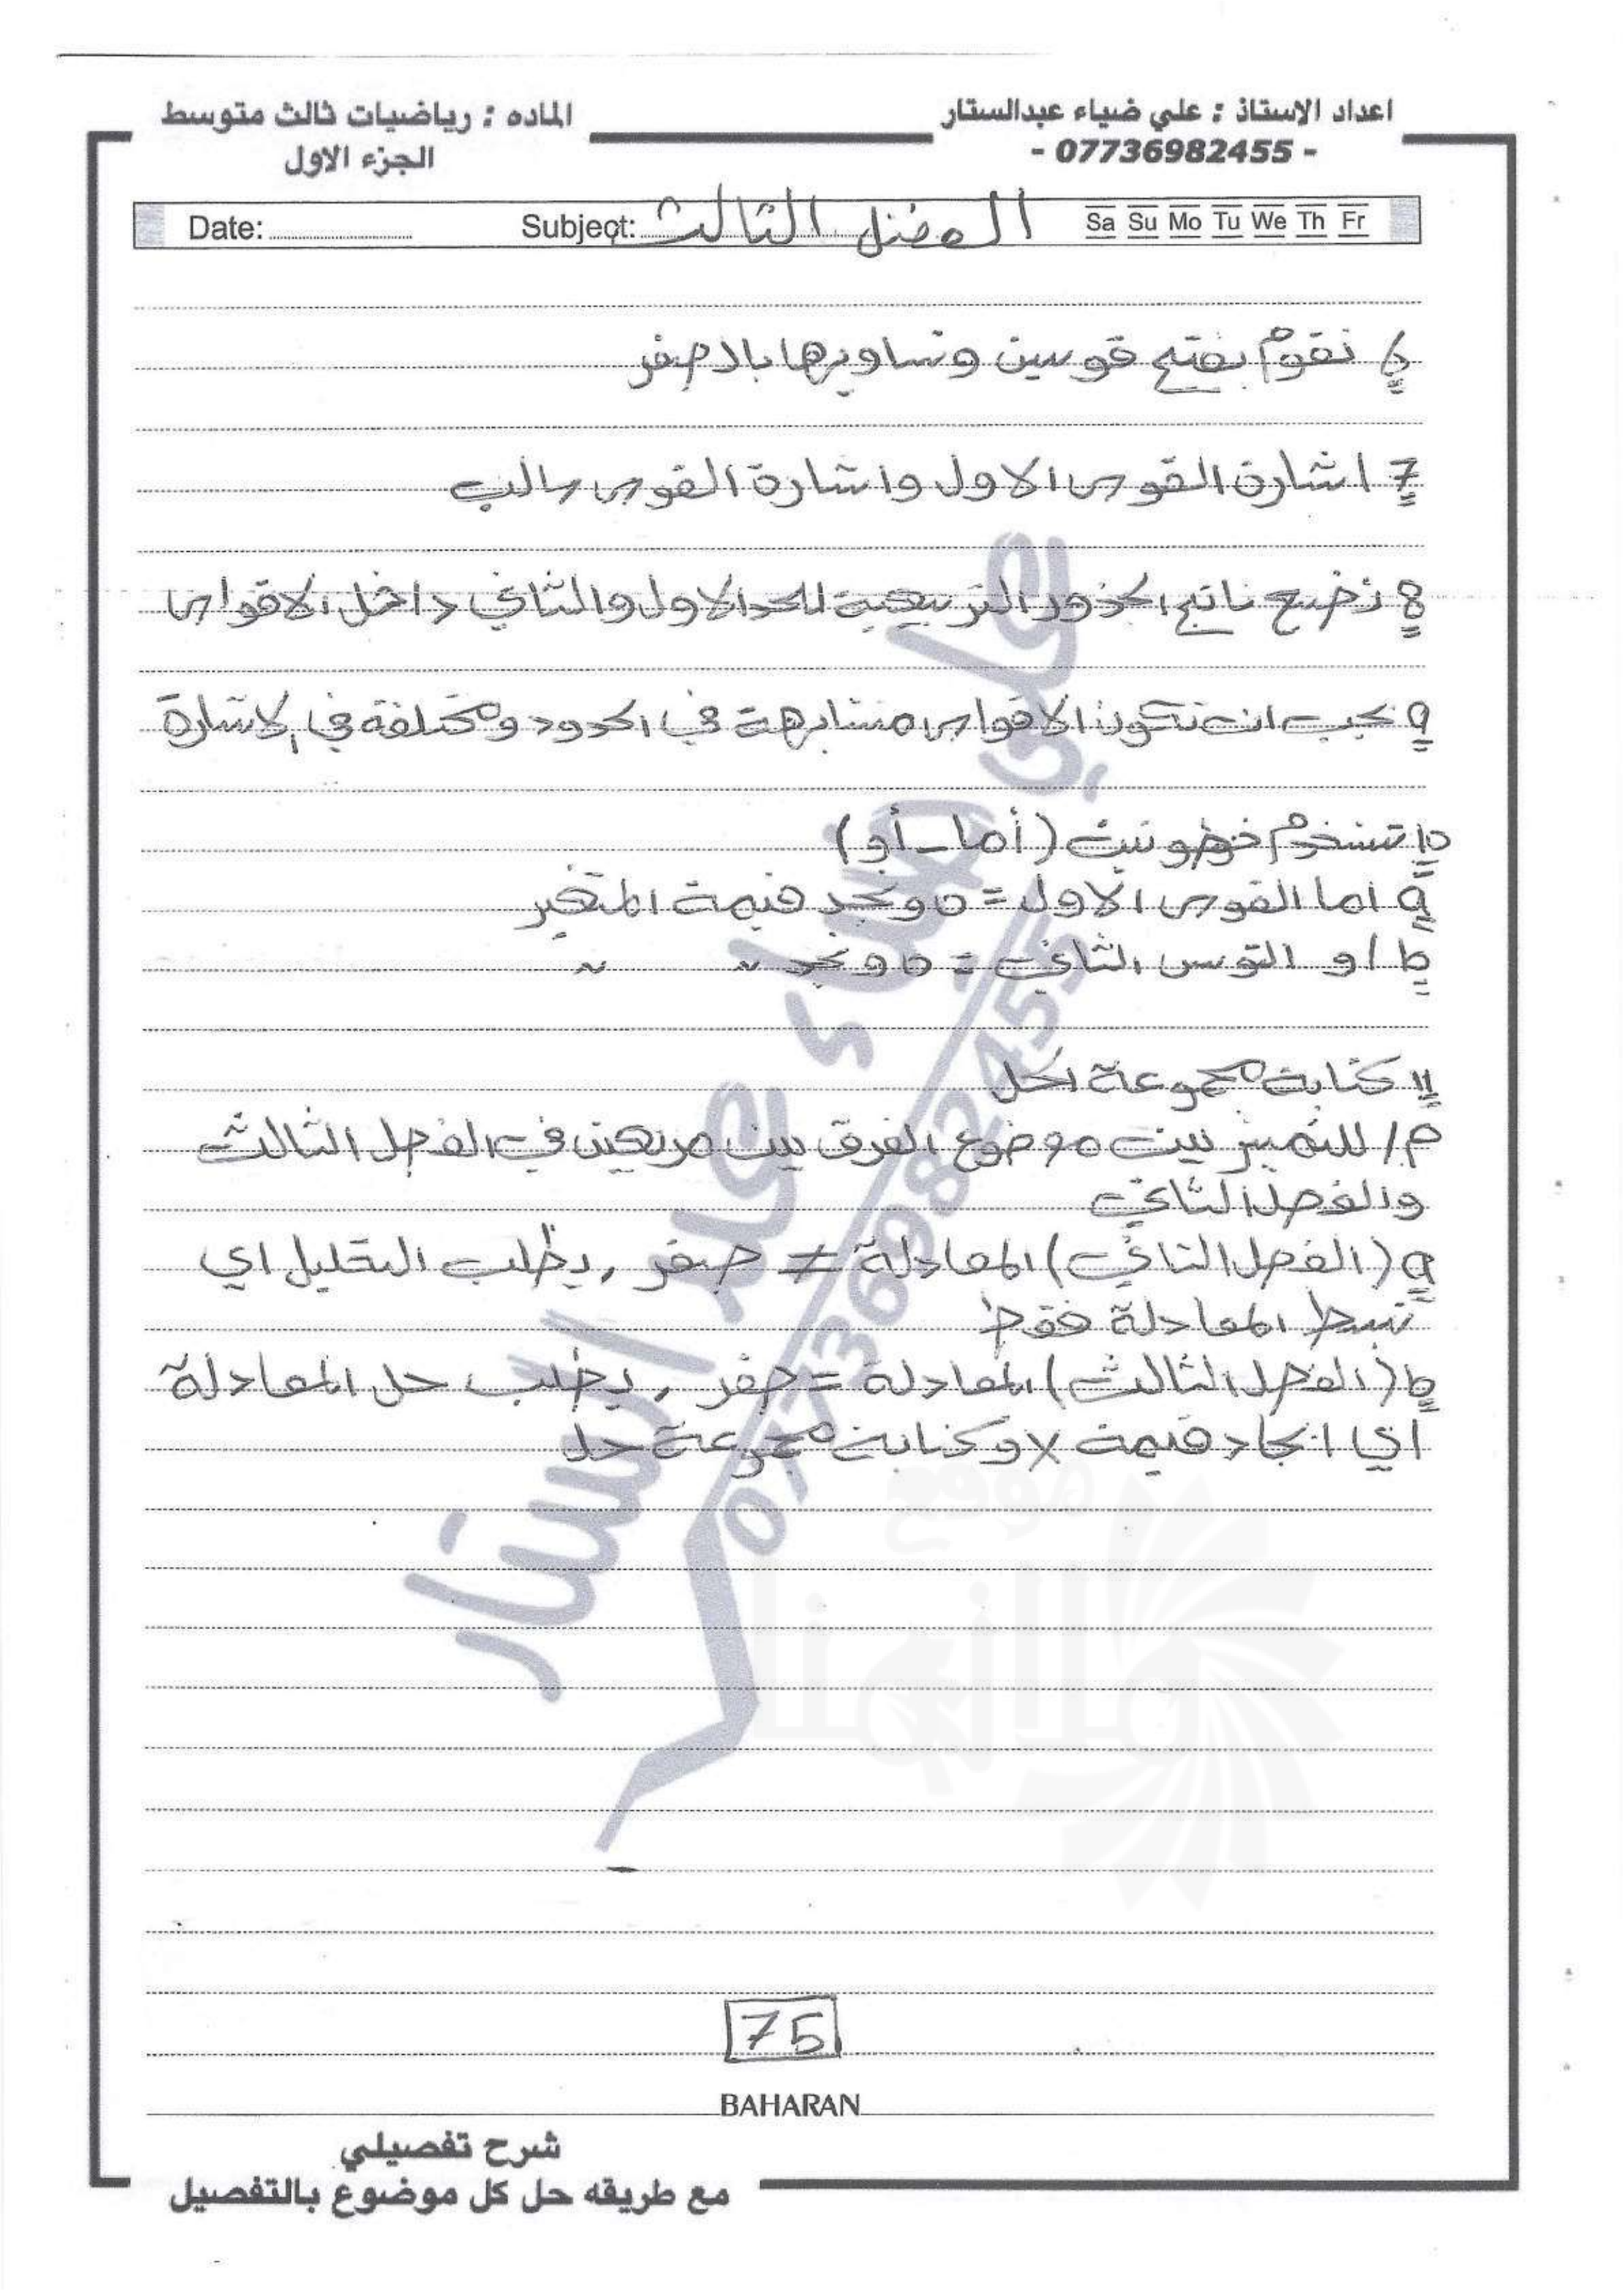 اعداد الاستاذ : علي ضياء عبدالستار
- 07736982455 -
الماده : رياضيات ثالث متوسط
الجزء الاول
Date: Subject: الفصل الثالث Sa Su Mo Tu We Th Fr
6 نقوم بفتح قوسين ونساويها بالصفر
7 اشارة القوس الاول واشارة القوس سالب
8 نضع ناتج الجذور التربيعية للحد الاول والثاني داخل الاقواس
9 يجب ان تكون الاقواس متشابهة في الحدود ومختلفة في الاشارة
10 تستخدم خطوتين (أما - أو)
a اما القوس الاول = 0 ونجد قيمة المتغير
b او القوس الثاني = 0 ونجد ~ ~
11 كتابة مجموعة الحل
م/ للتمييز بين موضوع الفرق بين مربعين في الفصل الثالث
والفصل الثاني
a (الفصل الثاني) المعادلة ≠ صفر , يطلب التحليل اي
تبسط المعادلة فقط
b (الفصل الثالث) المعادلة = صفر , يطلب حل المعادلة
اي ايجاد قيمة x وكتابة مجموعة حل
علي ضياء عبد الستار
07736982455
موقع
75
BAHARAN
شرح تفصيلي
مع طريقه حل كل موضوع بالتفصيل